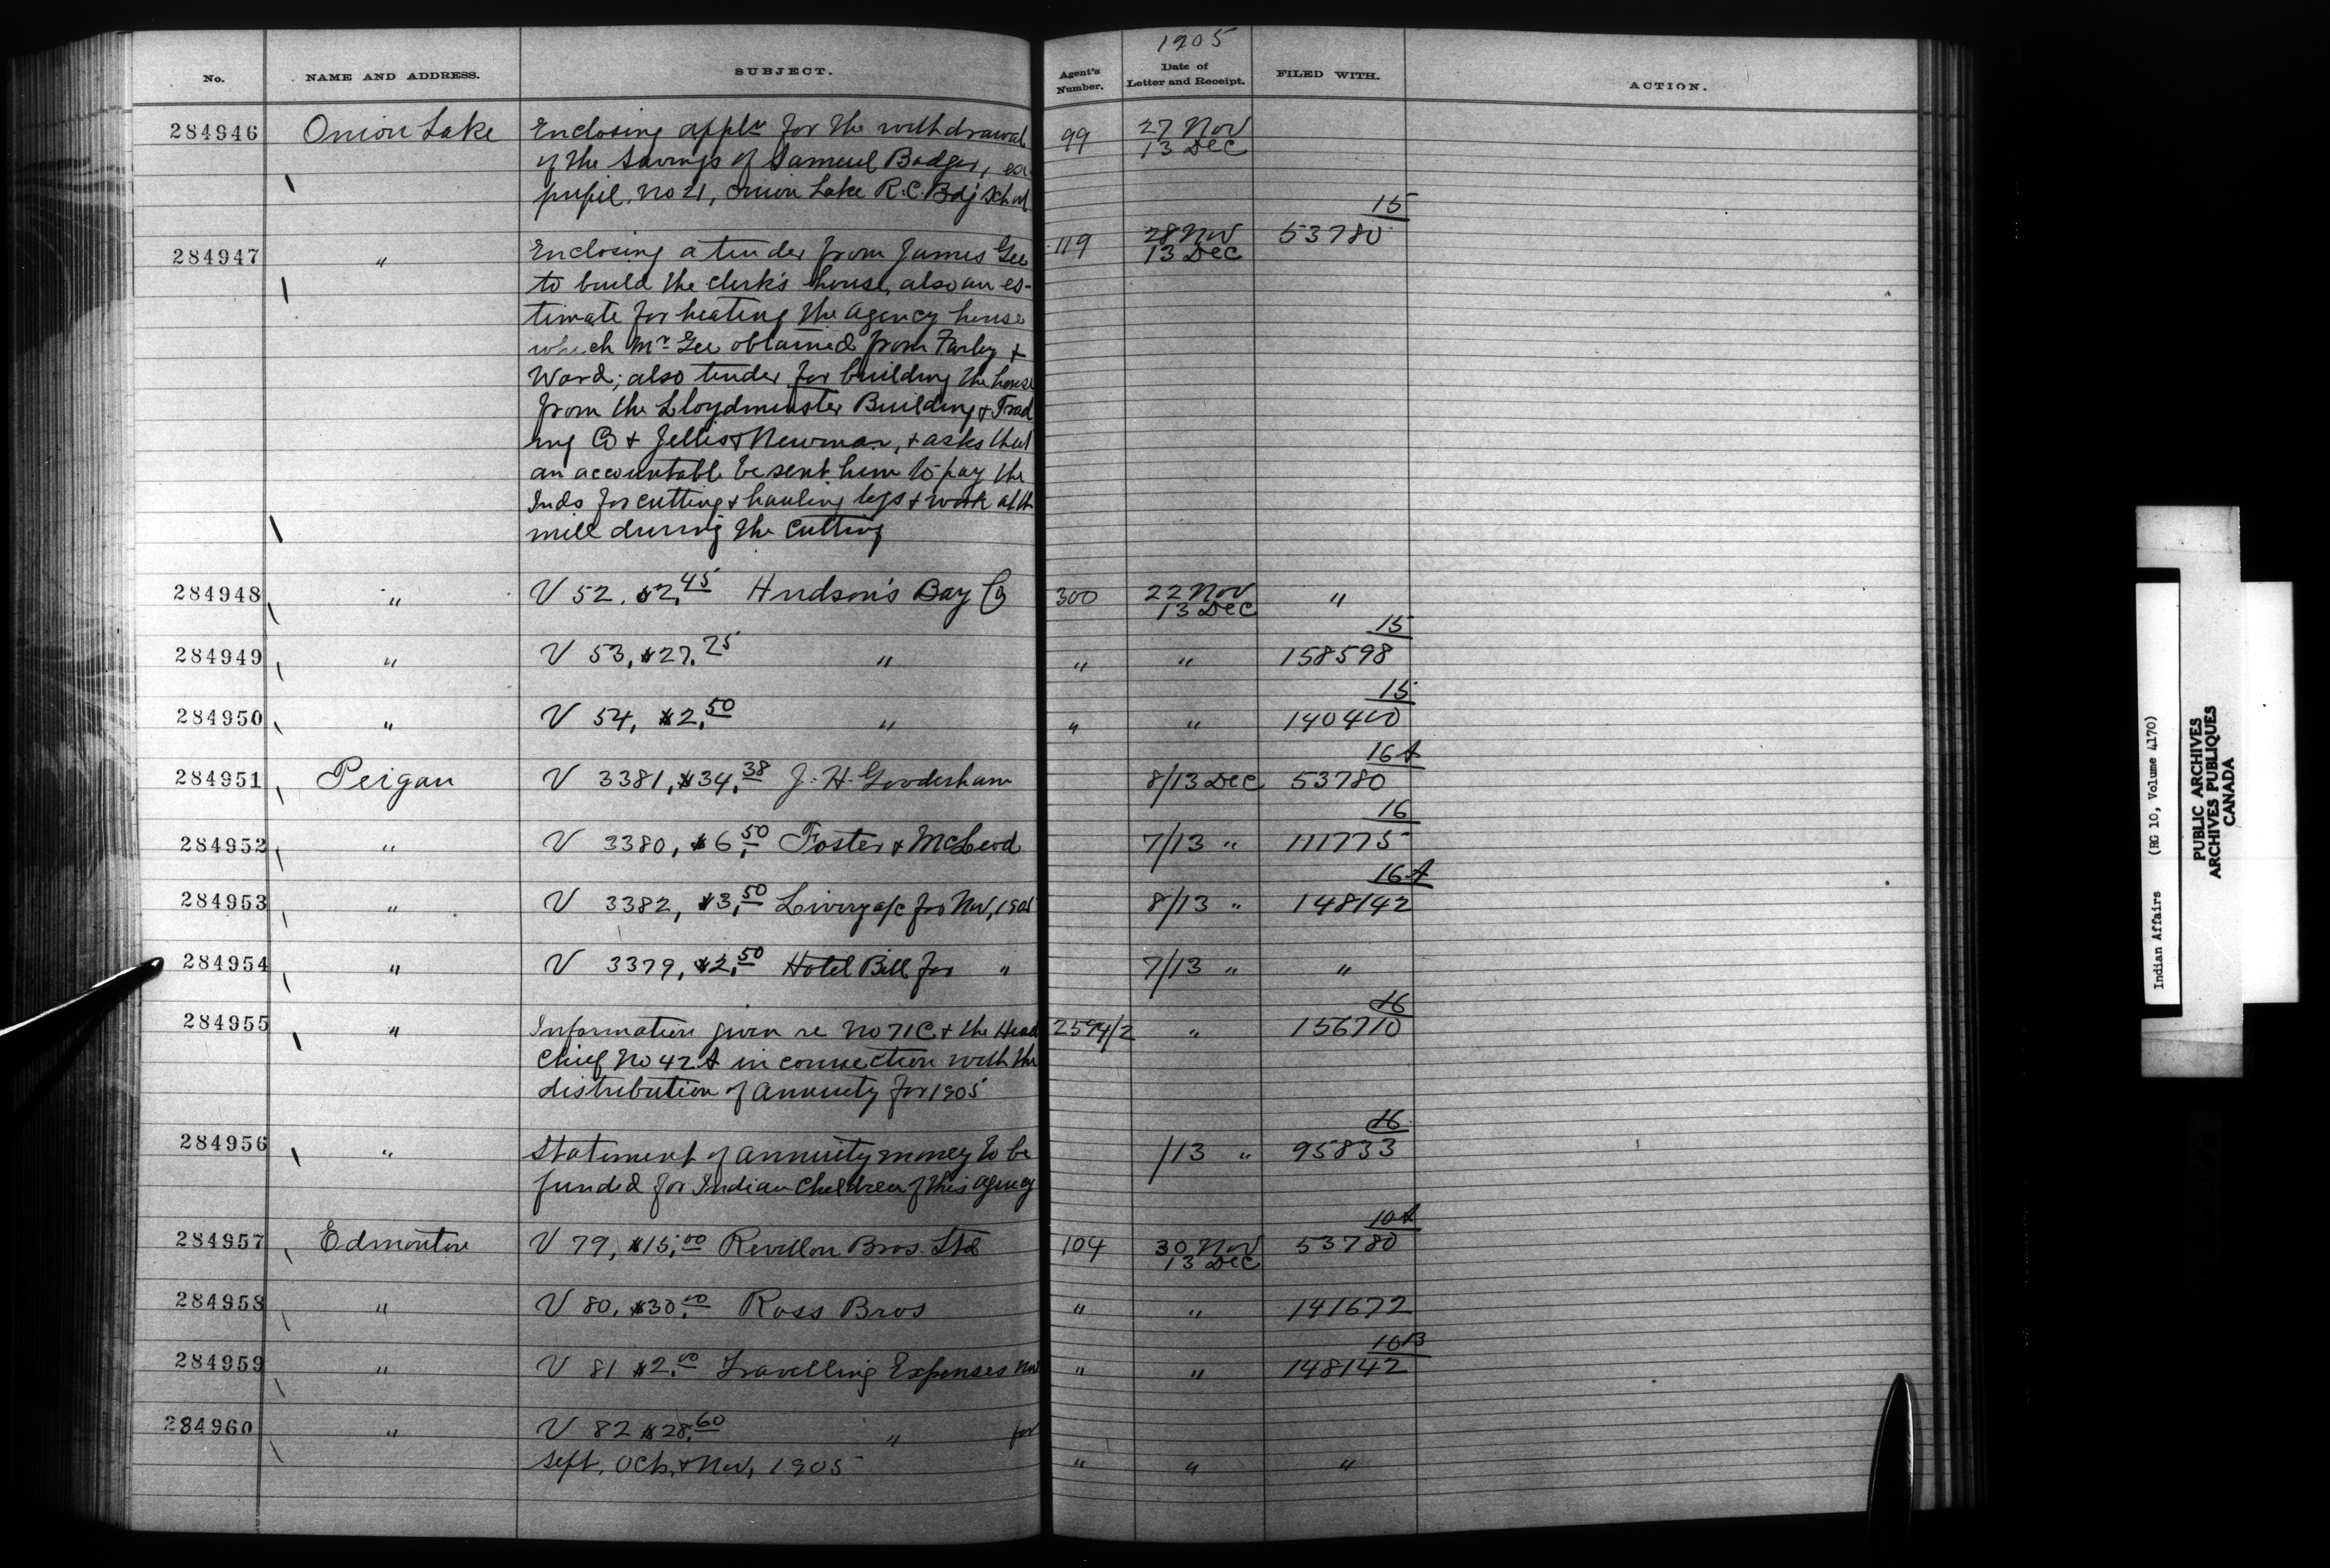 1905
No. NAME AND ADDRESS. SUBJECT. Agent's Number. Date of Letter and Receipt. FILED WITH. ACTION.
284946 Onion Lake Enclosing appln for the withdrawal 99 27 Nov
of the savings of Samuel Badger, ex 13 Dec
pupil. No 21, Onion Lake R.C. Bdg School
15
284947 " Enclosing a tender from James Gee 119 28 Nov 53780
to build the clerk's house, also an es- 13 Dec
timate for heating the agency house
which Mr Gee obtained from Farley &
Ward; also tender for building the house
from the Lloydminster Building & Trad
ing Co & Jellis & Newman, & asks that
an accountable be sent him to pay the
Inds for cutting & hauling logs & work at th
mill during the cutting
284948 " V 52. $2.45 Hudson's Bay Co 300 22 Nov "
13 Dec
15
284949 " V 53, $27.25 " " " 158598
15
284950 " V 54, $2.50 " " " 140400
16A
284951 Peigan V 3381, $34.38 J. H. Gooderham 8/13 Dec 53780
16
284952 " V 3380, $6.50 Foster & McLeod 7/13 " 111775
16A
284953 " V 3382, $3.50 Livery a/c for Nov, 1905 8/13 " 148142
284954 " V 3379, $2.50 Hotel Bill for " 7/13 " "
16
284955 " Information given re No 71C & the Head 2594/2 " 156710
Chief No 42A in connection with the
distribution of annuity for 1905
16
284956 " Statement of annuity money to be /13 " 95833
funded for Indian Children of this agency
10A
284957 Edmonton V 79, $15.00 Revillon Bros. Ltd 104 30 Nov 53780
13 Dec
284958 " V 80, $30.00 Ross Bros " " 141672
10B
284959 " V 81 $2.00 Travelling Expenses Nov " " 148142
284960 " V 82 $28.60 " for
Sept, Oct, & Nov, 1905 " " "
Indian Affairs (RG 10, Volume 4170)
PUBLIC ARCHIVES
ARCHIVES PUBLIQUES
CANADA